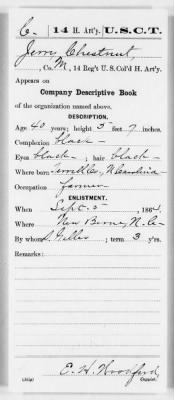 C. 14 H. Art'y. U.S.C.T.
Jerry Chestnut,
, Co. M, 14 Reg't U. S. Col'd H. Art'y.
Appears on
Company Descriptive Book
of the organization named above.
DESCRIPTION.
Age 40 years; height 5 feet 7 inches.
Complexion black
Eyes black ; hair black
Where born N Carolina
Occupation farmer
ENLISTMENT.
When Sept. 5, 1864.
Where New Berne, N.C.
By whom ; term 3 y'rs.
Remarks:
E. H. Woodford,
Copyist.